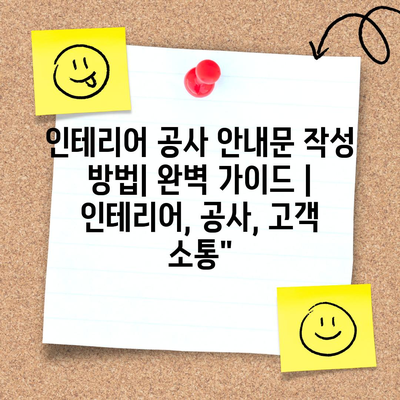 인테리어 공사 안내문 작성
방법| 완벽 가이드 |
인테리어, 공사, 고객
소통"